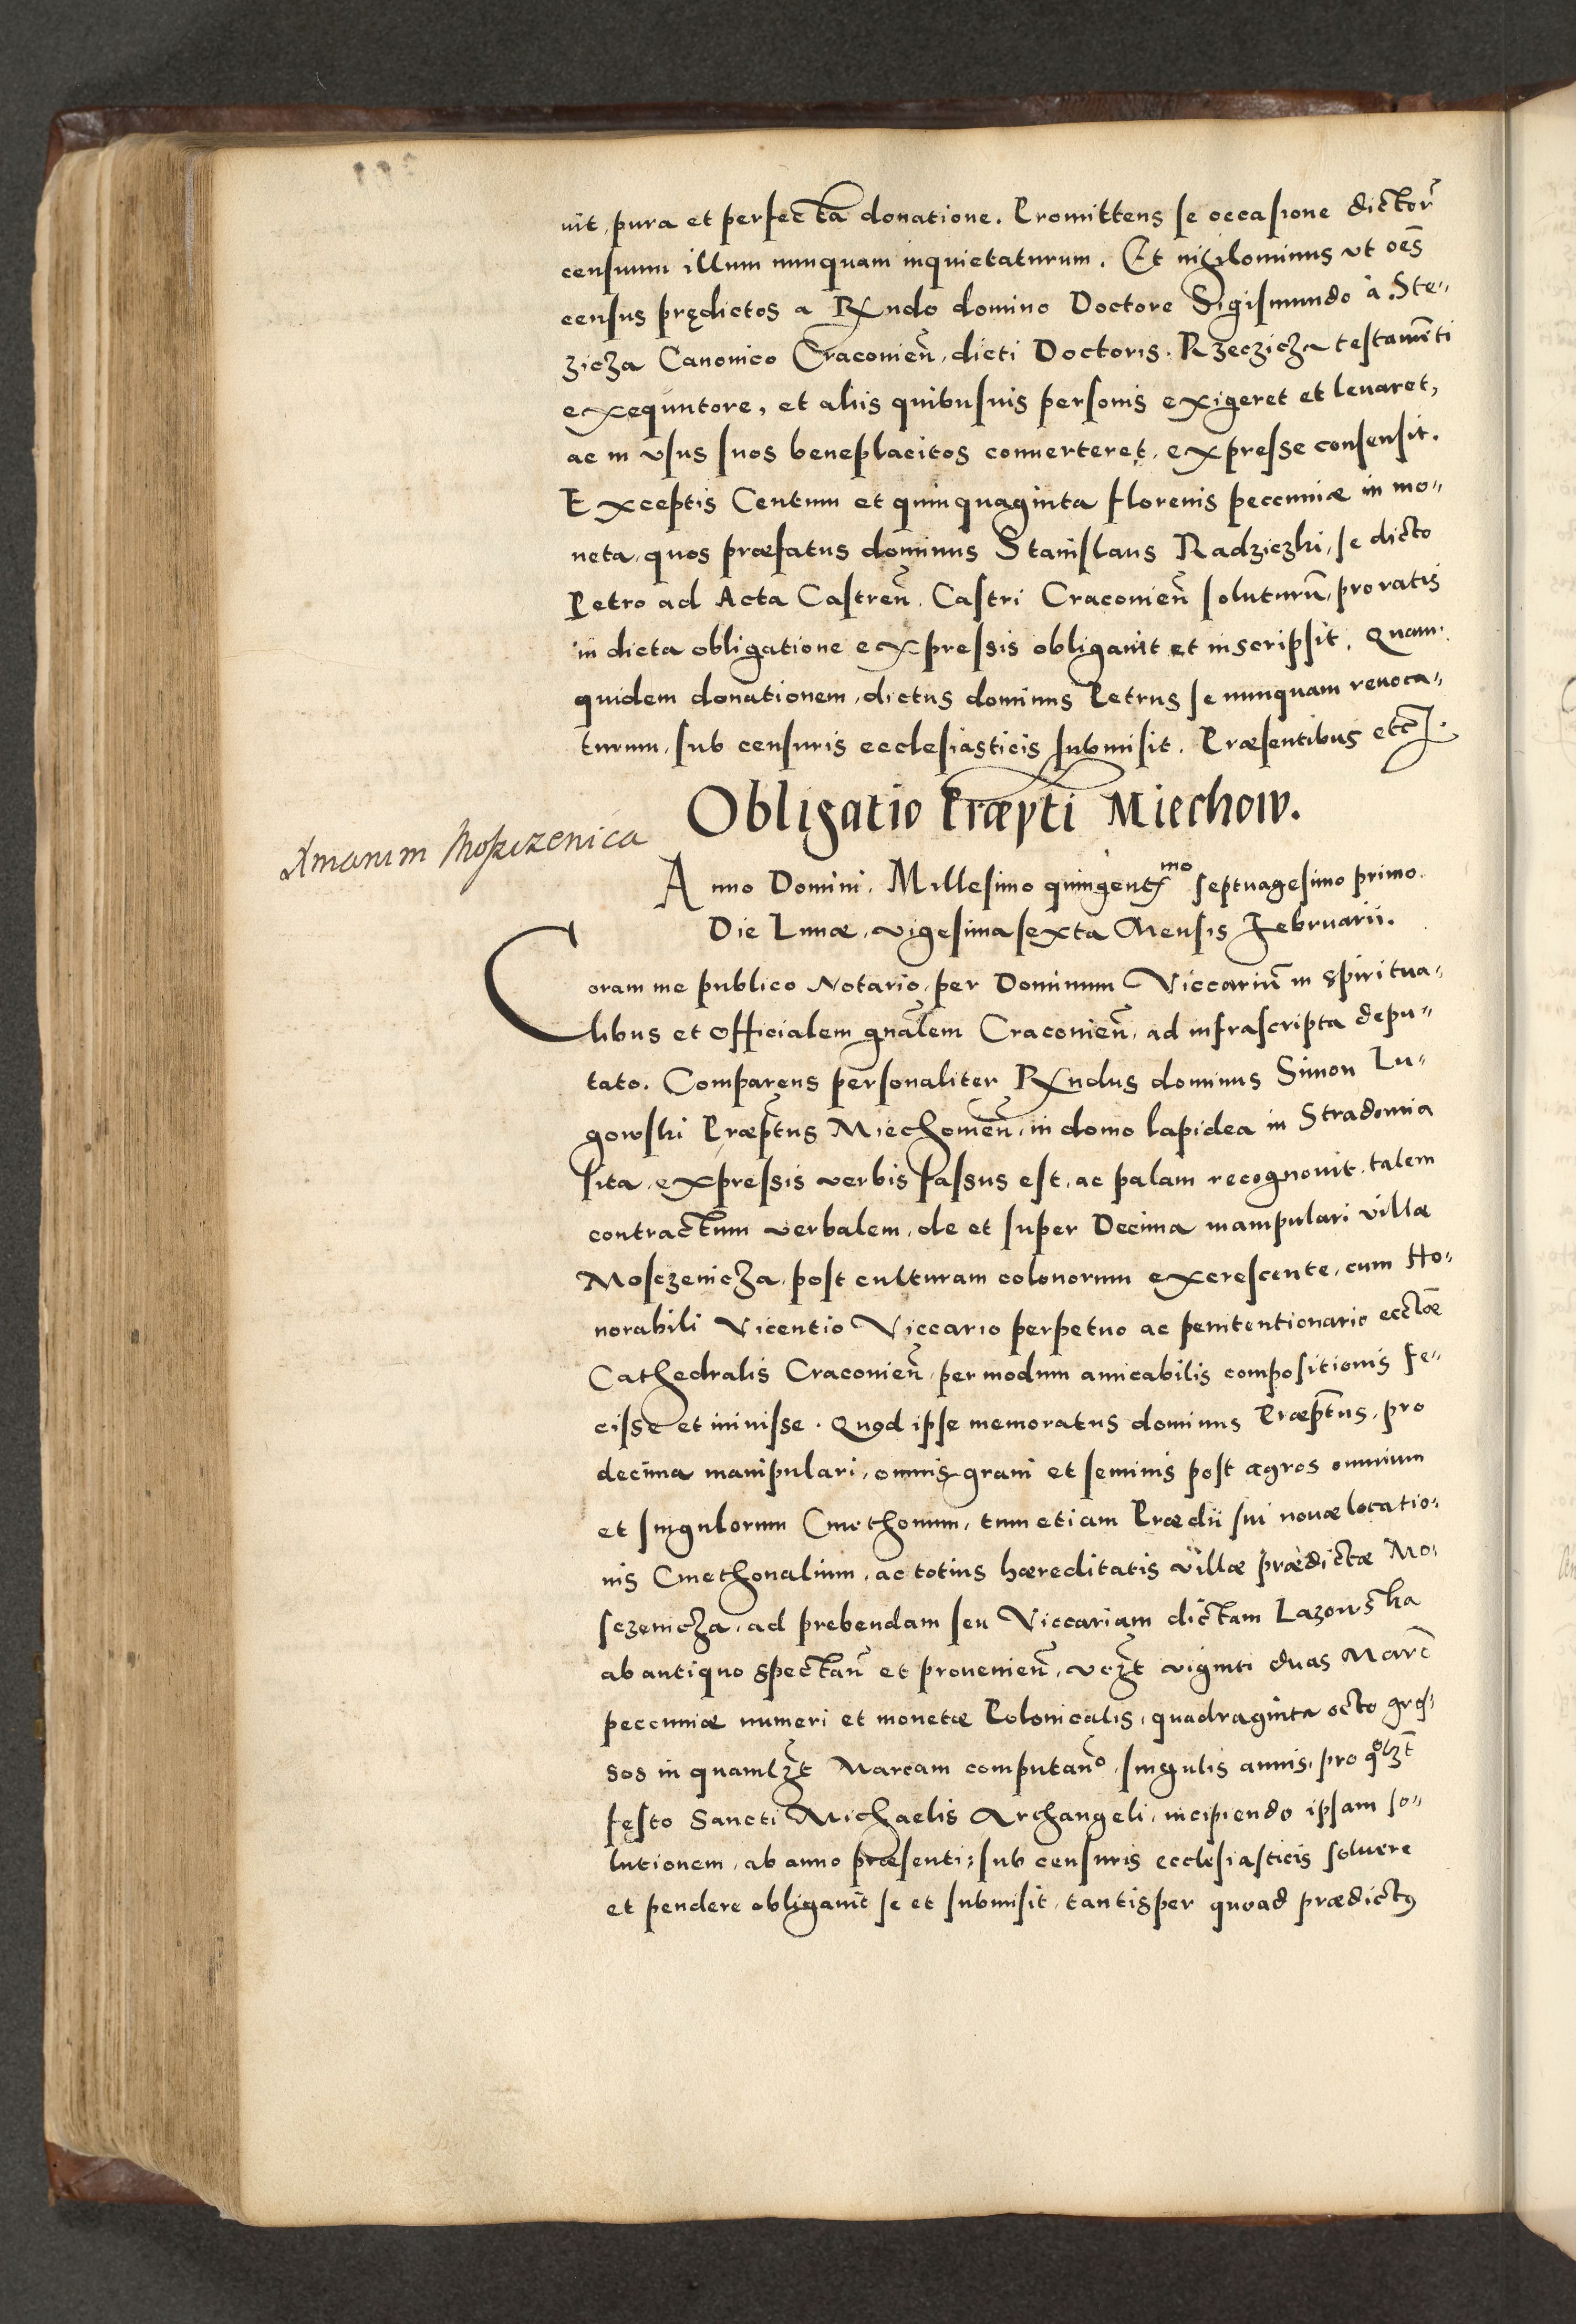 uit, pura et perfecta donatione. Promittens se occasione dictor̃
censuum illum nunquam inquietaturum. Et nihilominus vt oēs
census prędictos a Rx̃ndo domino Doctore Sigismundo à Ste„
zicza Canonico Cracouien̄, dicti Doctoris. Rzeczicza testam̄ti
exequutore, et aliis quibusuis personis exigeret et leuaret,
ac in vsus suos beneplacitos conuerteret, expresse consensit.
Exceptis Centum et quinquaginta florenis pecuniæ in mo„
neta, quos præfatus dominus Stanislaus Radziczki, se dicto
Petro ad Acta Castren̄. Castri Cracouien̄ soluturū, pro ratis
in dicta obligatione expressis obligauit et inscripsit. Quam
quidem donationem, dictus dominus Petrus se nunquam reuoca„
turum, sub censuris ecclesiasticis submisit. Præsentibus etc̄.
Obligatio Præpti Miechow.
Xmarum Moszczenica
Anno Domini. Millesimo quingentxͫᵒ septuagesimo primo.
Die Lunæ, vigesima sexta Mensis Februarii.
Coram me publico Notario, per Dominum Viccariū in spiritua„
libus et Officialem gnãlem Cracouien̄, ad infrascripta depu„
tato. Comparens personaliter Rx̃ndus dominus Simon Lu„
gowski Præp̄tus Miechouien̄, in domo lapidea in Stradomia
sita, expressis verbis fassus est, ac palam recognouit, talem
contractum verbalem, de et super Decima manipulari villæ
Mosczenicza, post culturam colonorum excrescente, cum Ho„
norabili Vicentio Viccario perpetuo ac penitentionario eccl̄œ
Cathedralis Cracouien̄, per modum amicabilis compositionis fe„
cisse et iniuisse. Quod ipse memoratus dominus Præp̄tus, pro
decima manipulari, omnis grani et seminis post agros omnium
et singulorum Cmethonum, tum etiam Prædii sui nouæ locatio„
nis Cmethonalium, ac totius hæreditatis villæ prædictæ Mo„
sczenicza, ad prebendam seu Viccariam dictam Lazowska
ab antiquo spectan̄ et prouenien̄, vcz̃t viginti duas Marc̄
pecuniæ numeri et monetæ Polonicalis, quadraginta octo gros„
sos in quamlz̃t Marcam computan̄o, singulis annis, pro qͦlz̄t
festo Sancti Michaelis Archangeli, incipiendo ipsam so„
lutionem, ab anno præsenti; sub censuris ecclesiasticis soluere
et pendere obligauit se et submisit, tantisper quoad prædictꝰ